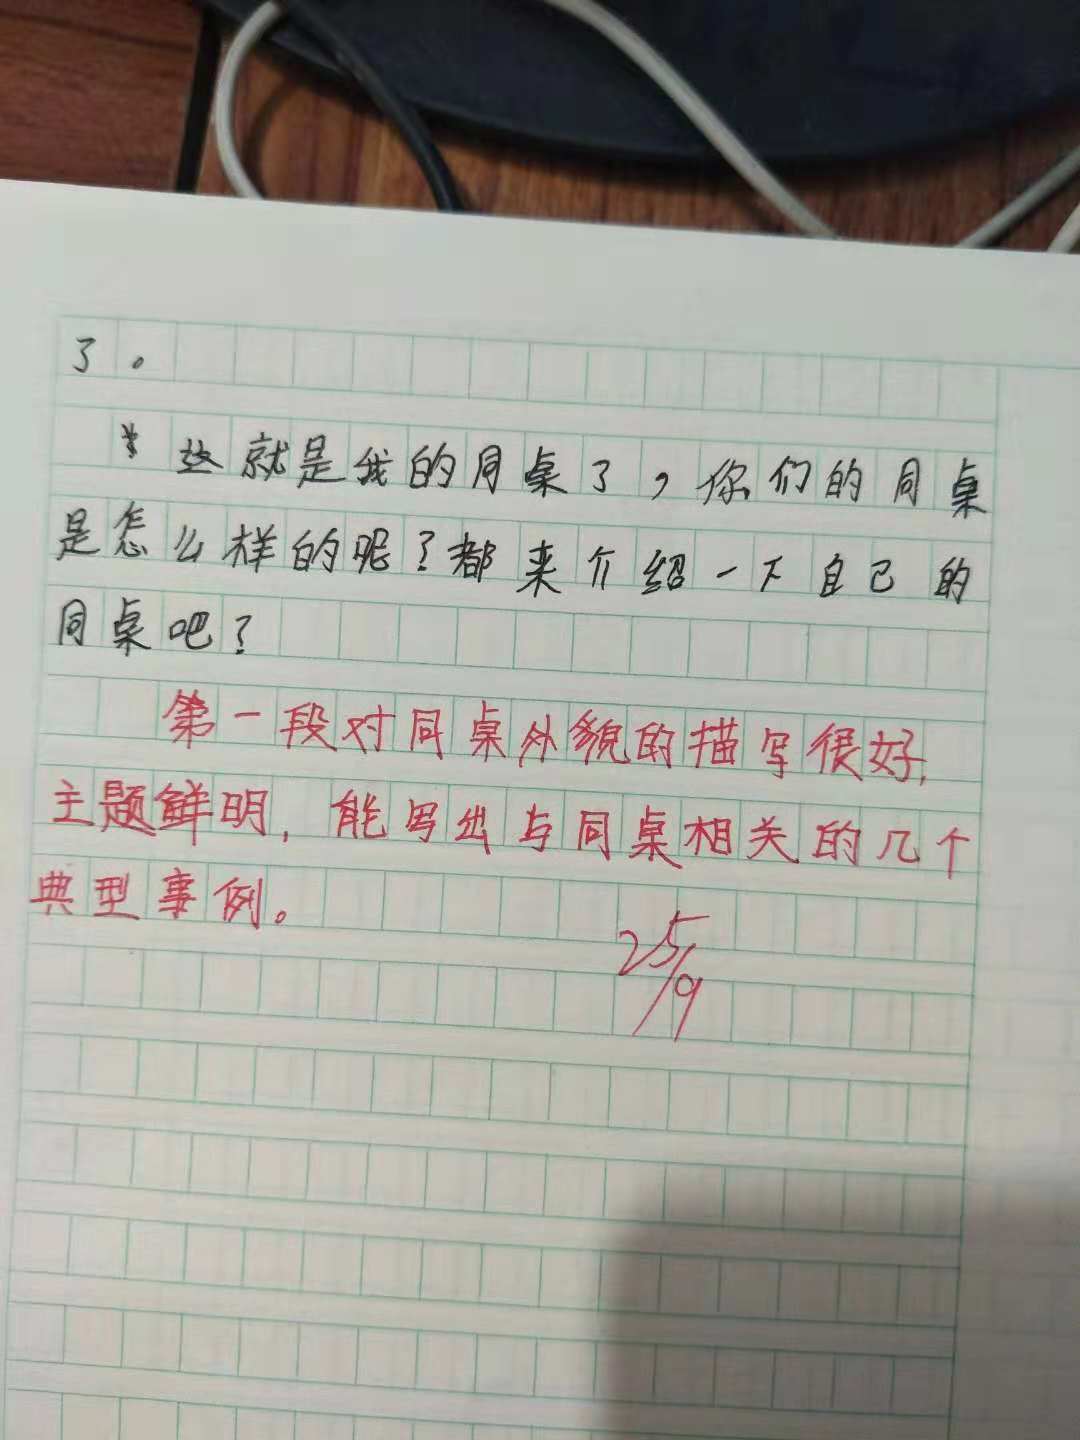 了。
这就是我的同桌了，你们的同桌
是怎么样的呢？都来介绍一下自己的
同桌吧？
第一段对同桌外貌的描写很好，
主题鲜明，能写出与同桌相关的几个
典型事例。
25/9